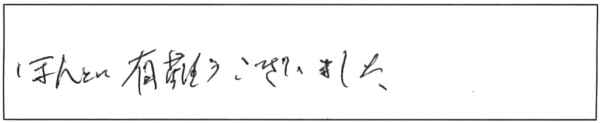 ほんとに有難うございました